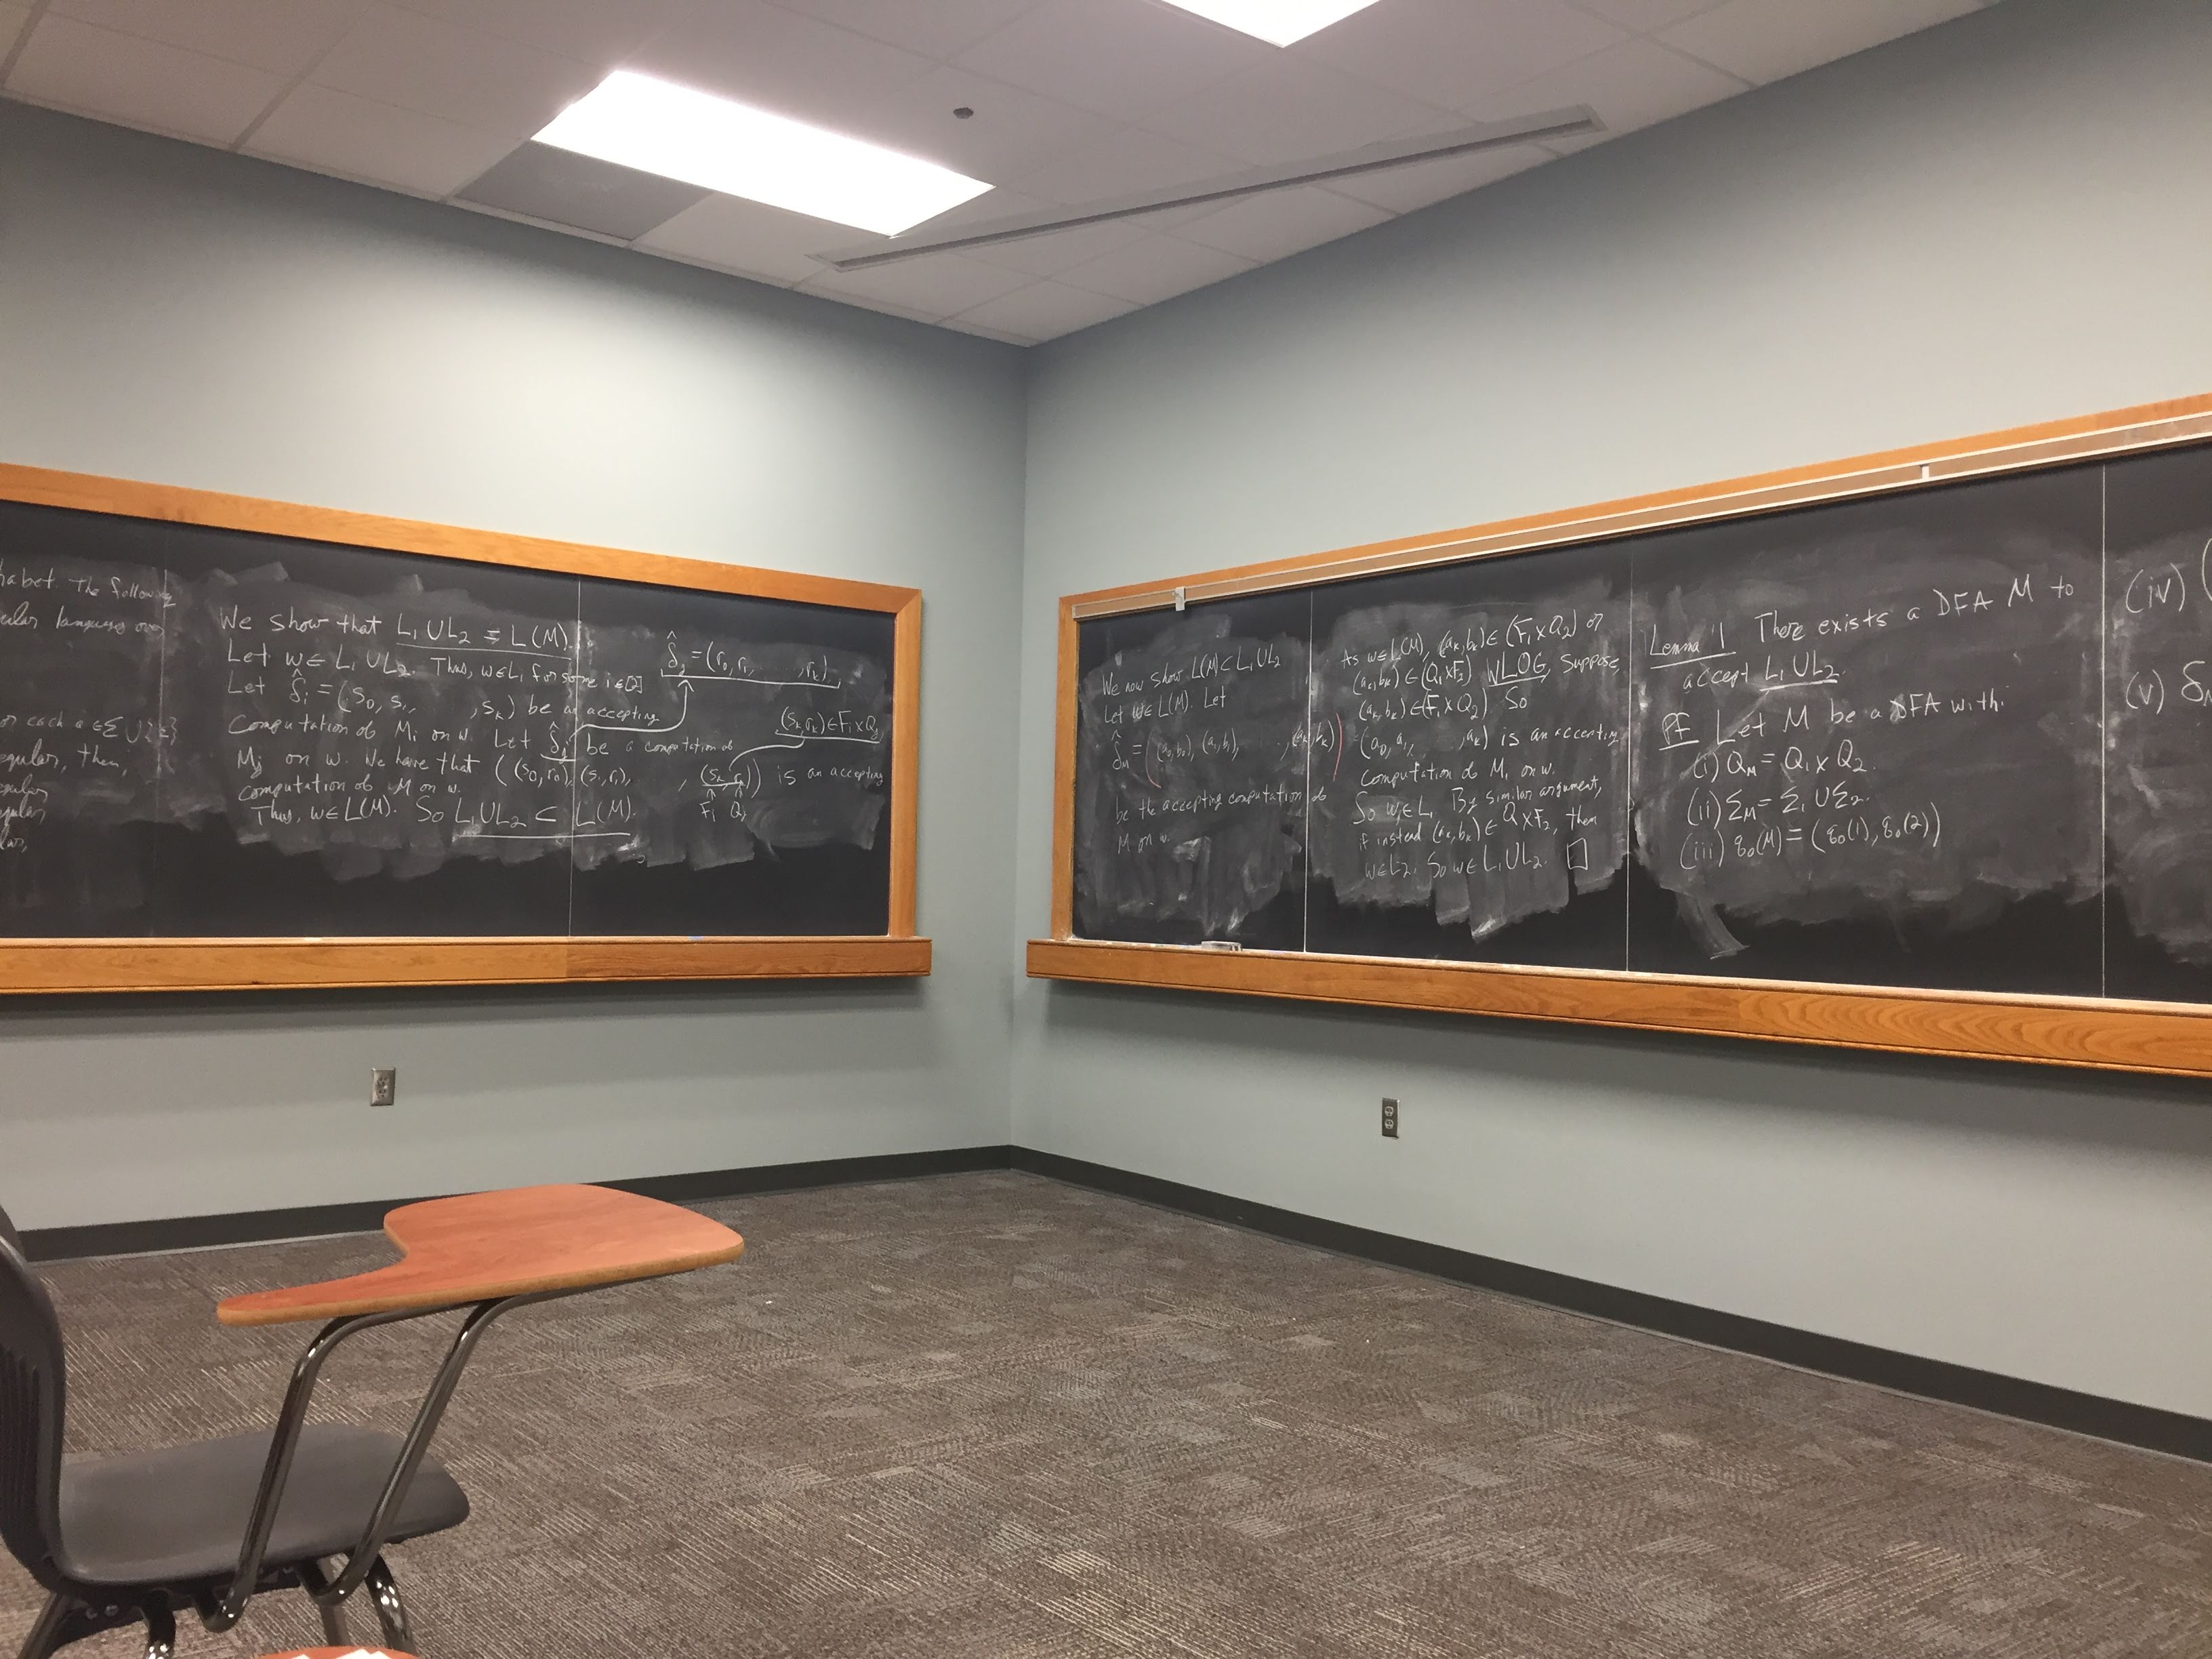 habet. The following
ular languages over
or each a ∈ Σ ∪ {ε}
egular, then,
We show that L₁ ∪ L₂ = L(M).
Let w ∈ L₁ ∪ L₂. Thus, w ∈ Lᵢ for some i ∈ [2]
Let δ̂ᵢ = (s₀, s₁, , sₖ) be an accepting
Computation of Mᵢ on w. Let δ̂ⱼ be a computation of
Mⱼ on w. We have that ((s₀, r₀), (s₁, r₁), , (sₖ, rₖ)) is an accepting
Fᵢ Qⱼ
computation of M on w.
Thus, w ∈ L(M). So L₁ ∪ L₂ ⊂ L(M).
δ̂ⱼ = (r₀, r₁, , rₖ)
(sₖ, rₖ) ∈ Fᵢ × Qⱼ
We now show L(M) ⊂ L₁ ∪ L₂
Let w ∈ L(M). Let
δ̂_M = ((a₀, b₀), (a₁, b₁), , (aₖ, bₖ))
be the accepting computation of
M on w.
As w ∈ L(M), (aₖ, bₖ) ∈ (F₁ × Q₂) or
(aₖ, bₖ) ∈ (Q₁ × F₂) WLOG, Suppose
(aₖ, bₖ) ∈ (F₁ × Q₂). So
(a₀, a₁, , aₖ) is an accepting
computation of M₁ on w.
So w ∈ L₁. By similar argument,
if instead (aₖ, bₖ) ∈ Q × F₂, then
w ∈ L₂. So w ∈ L₁ ∪ L₂. □
Lemma 1 There exists a DFA M to
accept L₁ ∪ L₂.
Pf Let M be a DFA with:
(i) Q_M = Q₁ × Q₂.
(ii) Σ_M = Σ₁ ∪ Σ₂.
(iii) q₀(M) = (q₀(1), q₀(2))
(iv) (
(v) δ